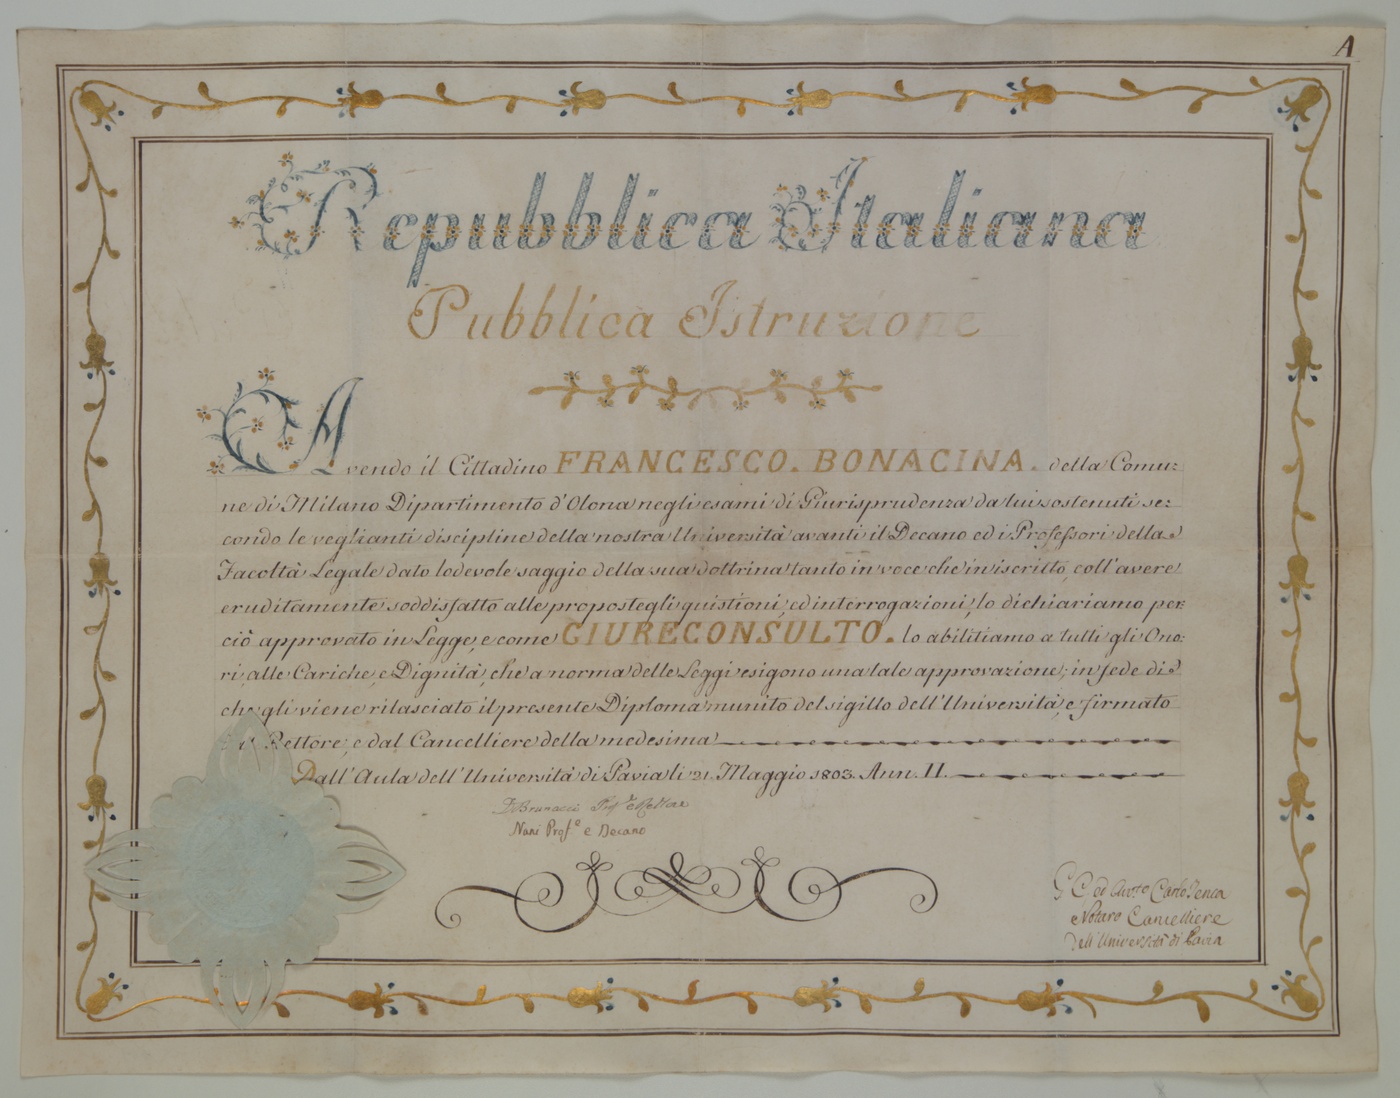 A
Repubblica Italiana
Pubblica Istruzione
Avendo il Cittadino FRANCESCO. BONACINA. della Comu:
ne di Milano Dipartimento d'Olona negli esami di Giurisprudenza da lui sostenuti se:
condo le veglianti discipline della nostra Università avanti il Decano ed i Professori della
Facoltà Legale dato lodevole saggio della sua dottrina tanto in voce che in iscritto, coll'avere
eruditamente soddisfatto alle propostegli quistioni, ed interrogazioni, lo dichiariamo per:
ciò approvato in Legge, e come GIURECONSULTO. lo abilitiamo a tutti gli Ono:
ri, alle Cariche, e Dignità, che a norma delle Leggi esigono una tale approvazione; in fede di
che gli viene rilasciato il presente Diploma munito del sigillo dell'Università, e firmato
Rettore, e dal Cancelliere della medesima
Dall'Aula dell'Università di Pavia li 21. Maggio 1803. Ann. II.
Brunacci Prof.e e Rettore
Nani Prof.e e Decano
Carlo
Notaro Cancelliere
dell'Università di Pavia